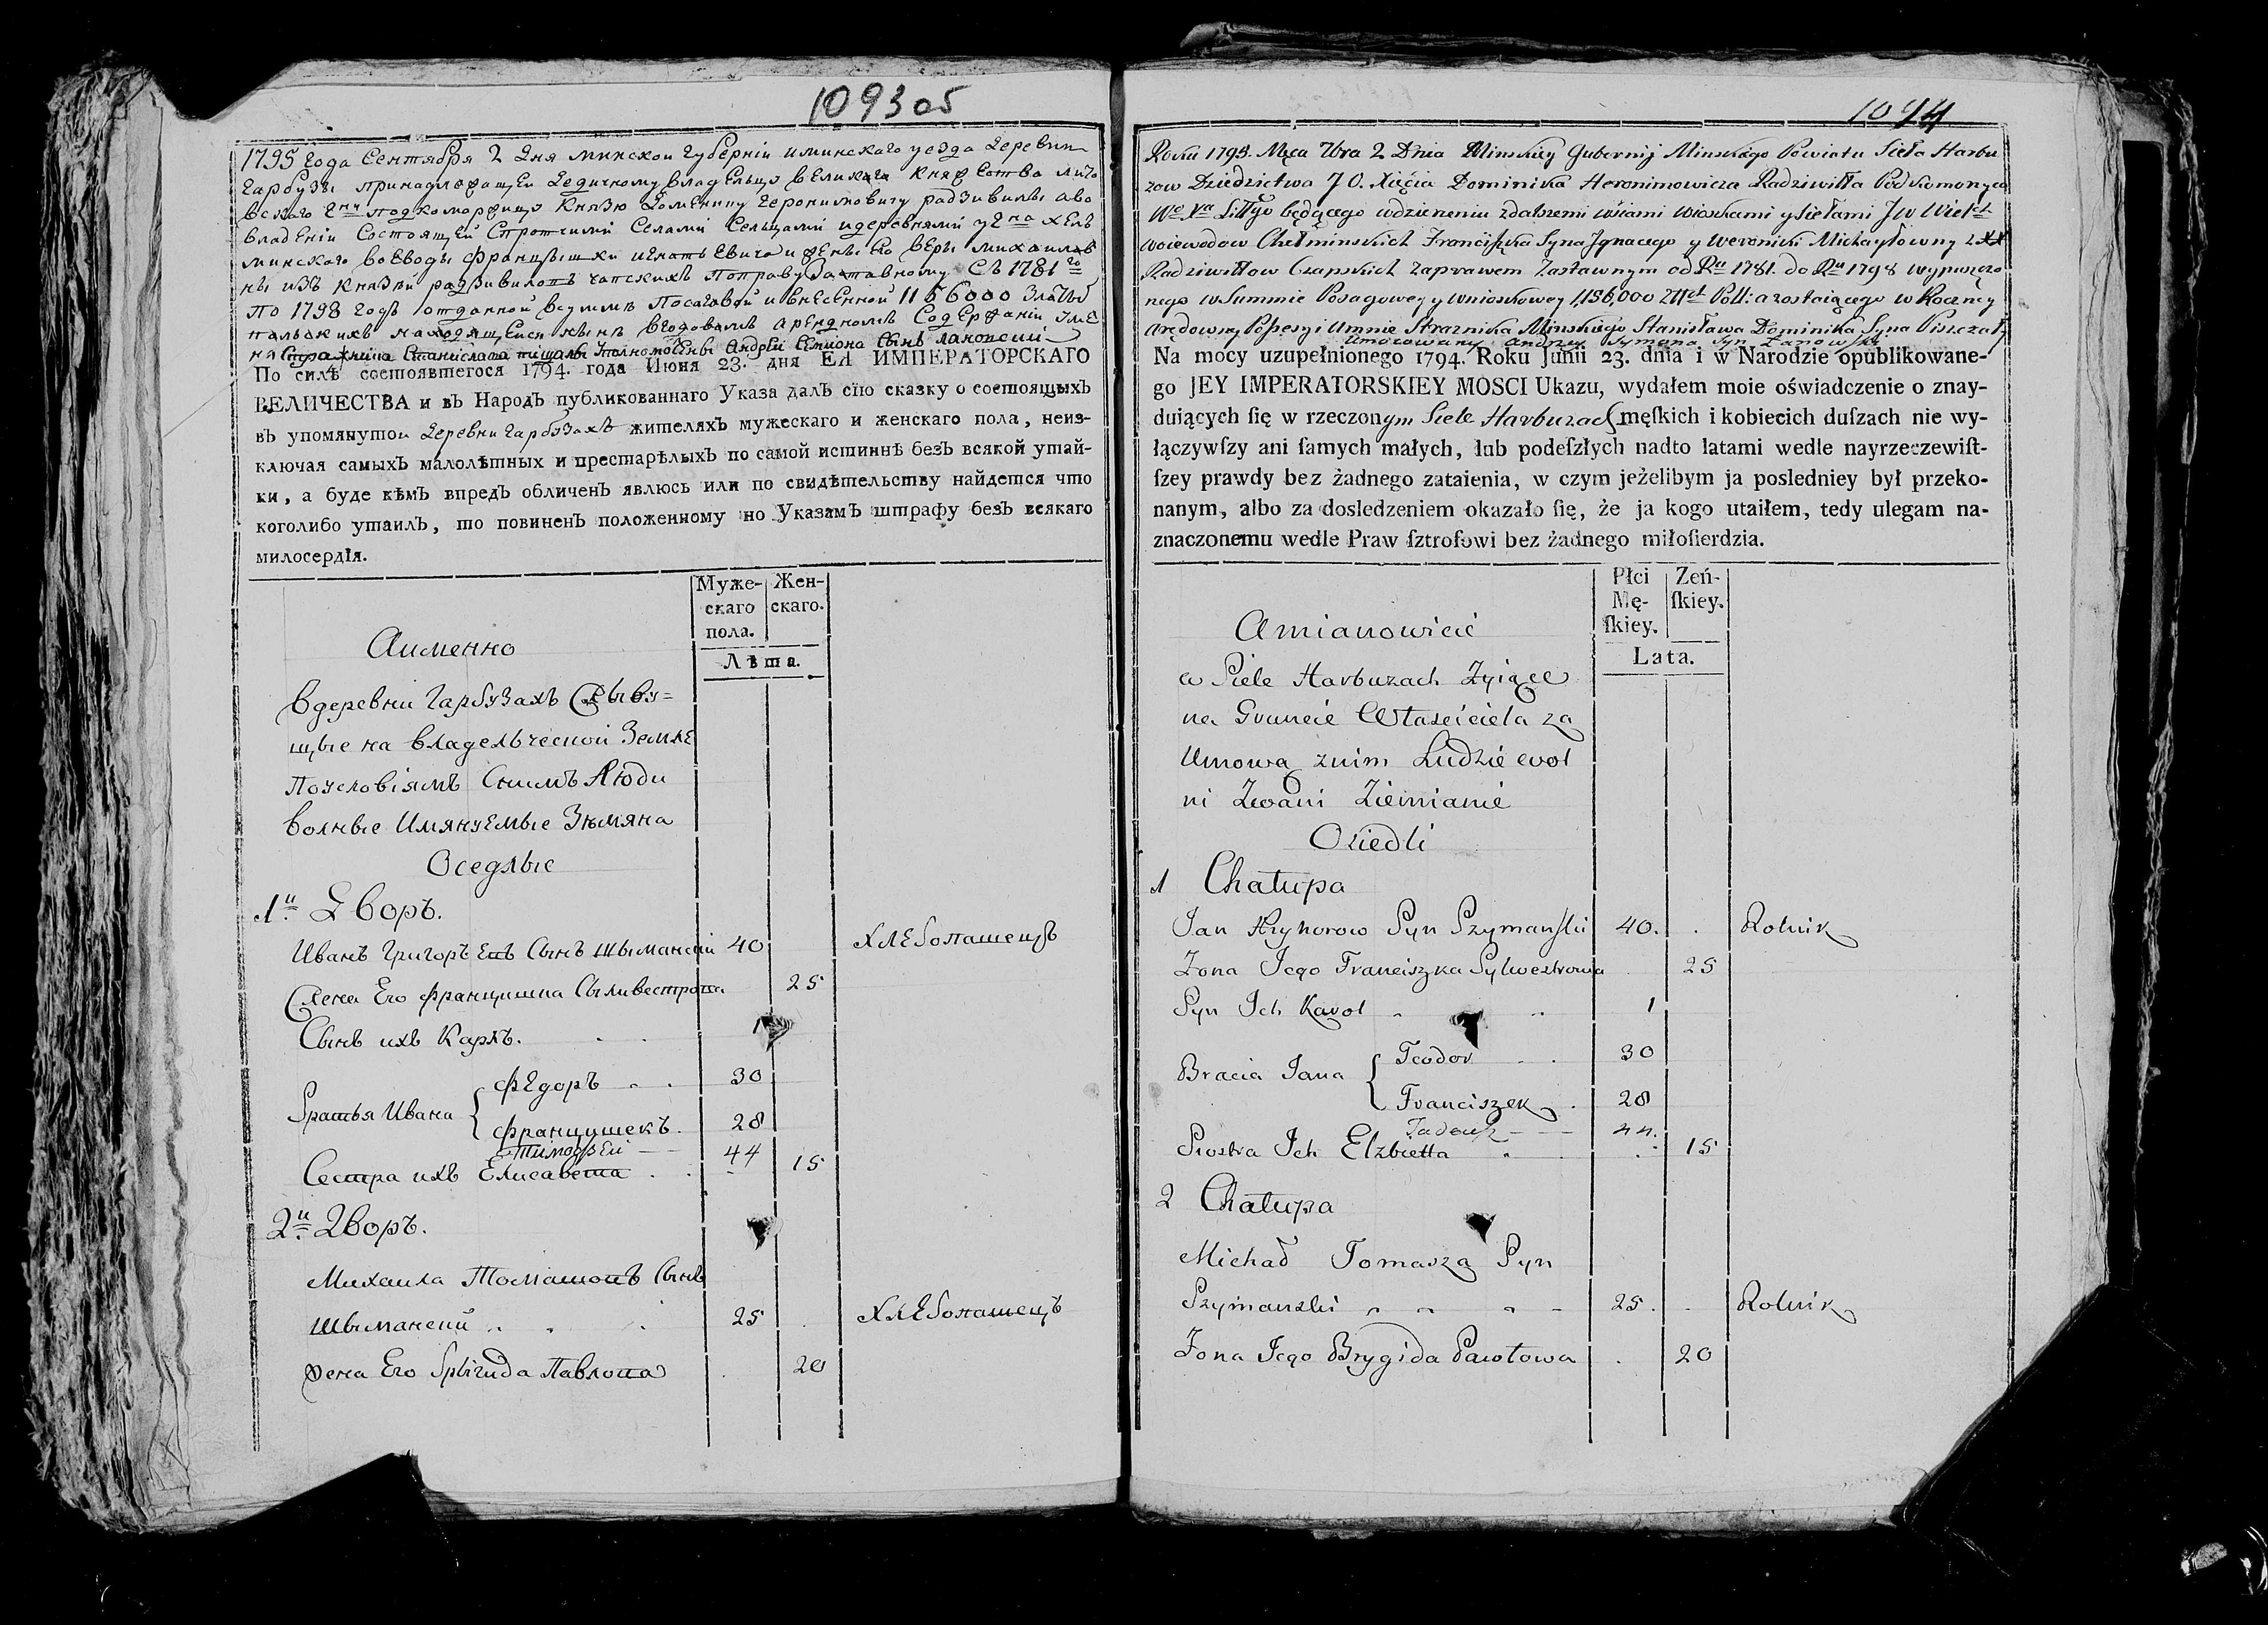 1093 об
1795 Года Сентября 2 дня минской Губерніи и минскаго уезда деревни
Гарбузы принадлежащей дедичному владельцу великаго княжества лито
вскаго подкоморжицу князю Доминику Геронимовичу радзивилы а во
владеніи состоящей с протчими селами сельцами и деревнями
минскаго воеводы францишки игнатьевича и жены его веры михаилов
ны изъ князей радзивиловъ чапскихъ по праву заставному съ 1781 го
по 1798 годъ отданной в сумме посаговой и внесенной 1156000 Златыхъ
польскихъ находящейся нынѣ в годовомъ арендномъ содержаніи
стражника Станислава пищалы Андрей Семиона сынъ
По силѣ состоявшегося 1794. года Июня 23. дня ЕЯ ИМПЕРАТОРСКАГО
ВЕЛИЧЕСТВА и въ Народъ публикованнаго Указа далъ сїю сказку о состоящыхъ
въ упомянутои деревни гарбузахъ жителяхъ мужескаго и женскаго пола, неиз-
ключая самыхъ малолѣтныхъ и престарѣлыхъ по самой истиннѣ безъ всякой утай-
ки, а буде кѣмъ впредъ обличенъ явлюсь или по свидѣтельству найдется что
коголибо утаилъ, то повиненъ положенному по Указамъ штрафу безъ всякаго
милосердїя.
Муже-скаго пола. Жен-скаго.
Лѣта.
Аименно
в деревни гарбузахъ Живу=
щые на владельческой Земле
по условіямъ снимъ Люди
волные имянуемые Зѣмяна
Оседлые
1й Дворъ.
Иванъ Григорьевъ Сынъ Шыманский 40 хлебопашецъ
Жена Его францишка Сыливестрова 25
Сынъ ихъ Карлъ. 1
Братья Ивана { федоръ 30
францишекъ. 28
Тимофей 44
Сестра ихъ Елисавета 15
2й Дворъ.
Михаила Томашовъ Сынъ
Шыманский 25 хлебопашецъ
жена Его Брыгида Павлова 20
1094
Roku 1795. Mca 7bra 2 Dnia Minskiey Gubernij Minskiego Powiatu Sieła Harbu
zow Dziedzictwa J O. Xięcia Dominika Heronimowicza Radziwiłła Podkomorzyca
Wo Xa Littgo będącego w dzierzeniu z dalszemi wsiami wioskami y siełami J W Wielch
Woiewodow Chełminskich Franciszka Syna Jgnacego y Weroniki Michayłowny z XX
Radziwiłłow Czapskich za prawem Zastawnym od Ru 1781. do Ru 1798 wypuszczo
nego w Summie Posagowey y wnioskowey 1,156,000 Złłch Poll: a zostaiącego w Roczney
arędowney Possesyi Umnie Straznika Minskiego Stanisława Dominika Syna Piszczały
Umocowany Andrzey Symona Syn Łanowski
Na mocy uzupełnionego 1794. Roku Junii 23. dnia i w Narodzie opublikowane-
go JEY IMPERATORSKIEY MOSCI Ukazu, wydałem moie oświadczenie o znay-
duiących ſię w rzeczonym Siele Harbuzach męſkich i kobiecich duſzach nie wy-
łączywſzy ani ſamych małych, lub podeſzłych nadto latami wedle nayrzeczewiſt-
ſzey prawdy bez żadnego zataienia, w czym jeżelibym ja posledniey był przeko-
nanym, albo za dosledzeniem okazało ſię, że ja kogo utaiłem, tedy ulegam na-
znaczonemu wedle Praw ſztrofowi bez żadnego miłoſierdzia.
Płci Mę-ſkiey. Zeń-ſkiey.
Lata.
Amianowicie
w Siele Harbuzach Zyiące
na Gruncie Własciciela za
Umową znim Ludzie wol
ni Zwani Ziemianie
Osiedli
1 Chałupa
Jan Hryhorow Syn Szymanski 40. Rolnik
Zona Jego Franciszka Sylwestrowa 25
Syn Ich Karol 1
Bracia Jana { Teodor 30
Franciszek 28
Tadeusz 44.
Siostra Ich Elzbietta 15
2 Chałupa
Michał Tomasza Syn
Szymanski 25. Rolnik
Zona Jego Brygida Pawłowa 20